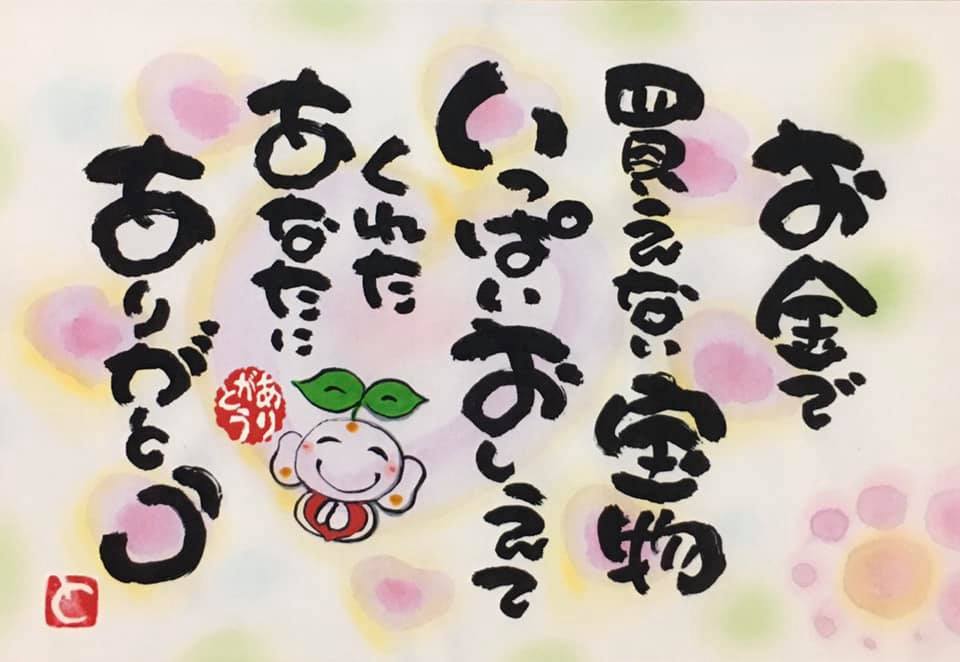 お金で
買えない宝物
いっぱいおしえて
くれた
あなたに
ありがとう
ありがとう
と